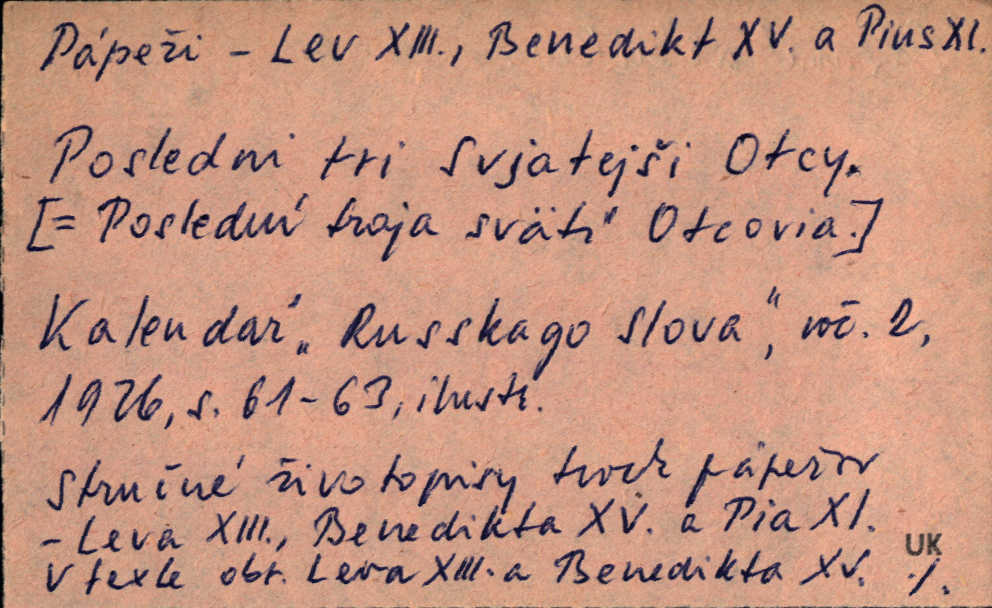 Pápeži - Lev XIII., Benedikt XV. a Pius XI.
Posledni tri Svjatejši Otcy.
[= Poslední traja svätí Otcovia.]
Kalendář „Russkago Slova“, roč. 2,
1926, s. 61-63, ilustr.
Stručné životopisy troch pápežov
- Leva XIII., Benedikta XV. a Pia XI.
V texte obr. Leva XIII. a Benedikta XV.
UK
./.